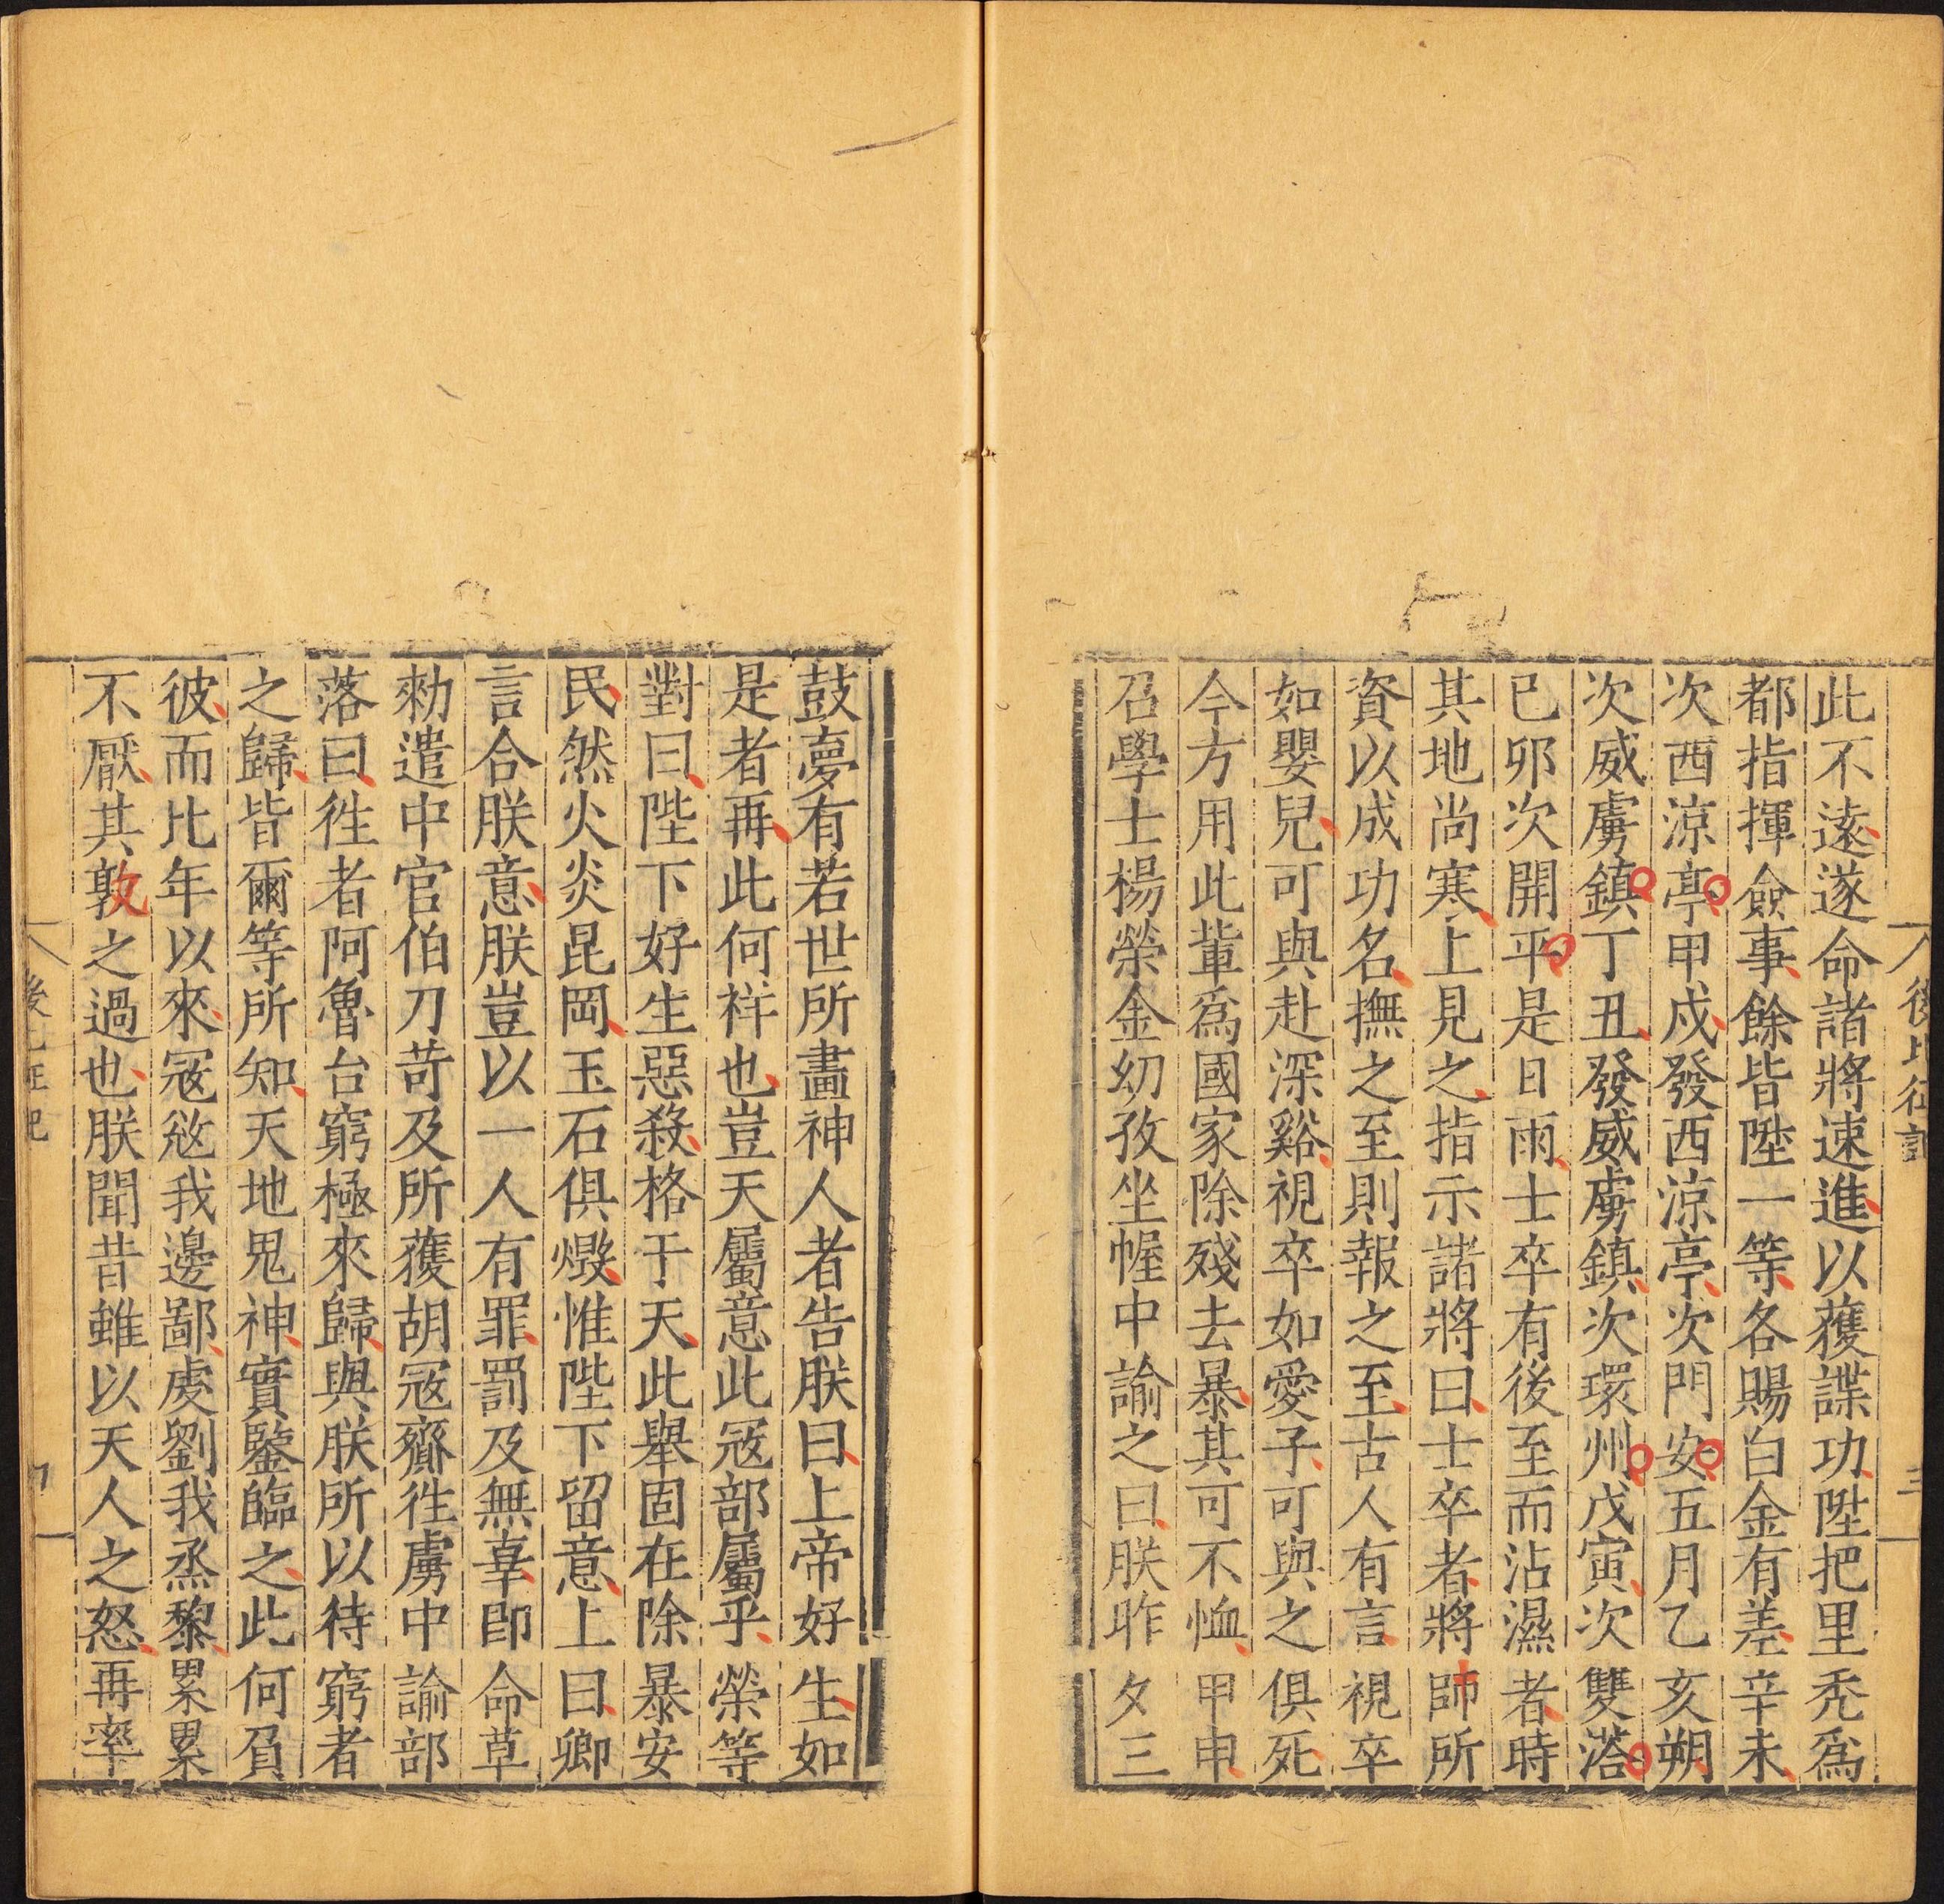 後北征記
三
此不遠遂命諸將速進以獲諜功陞把里禿爲
都指揮僉事餘皆陞一等各賜白金有差辛未
次西涼亭甲戍發西涼亭次門安五月乙亥朔
次威虜鎮丁丑發威虜鎮次環州戊寅次雙㙮
已卯次開平是日雨士卒有後至而沾濕者時
其地尚寒上見之指示諸將曰士卒者將師所
資以成功名撫之至則報之至古人有言視卒
如嬰兒可與赴深谿視卒如愛子可與之俱死
今方用此軰爲國家除殘去暴其可不恤甲申
召學士楊榮金幼孜坐幄中諭之曰朕昨夕三
鼓夢有若世所畫神人者告朕曰上帝好生如
是者再此何祥也豈天屬意此冦部屬乎榮等
對曰陛下好生惡殺格于天此舉固在除暴安
民然火炎昆岡玉石俱燬惟陛下留意上曰卿
言合朕意朕豈以一人有罪罰及無辜卽命草
勑遣中官伯刀苛及所獲胡冦齎徃虜中諭部
落曰徃者阿魯台窮極來歸與朕所以待窮者
之歸皆爾等所知天地鬼神實鑒臨之此何負
彼而比年以來冦㓂我邊鄙虔劉我烝黎累累
不厭其敦之過也朕聞昔雖以天人之怒再率
後北征記